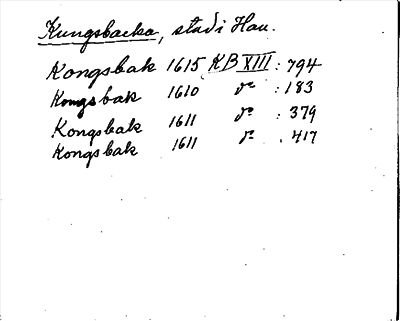 Kungsbacka, stad i Hall.
Kongsbak 1615 KB XIII : 794
Kongsbak 1610 do : 183
Kongsbak 1611 do : 379
Kongsbak 1611 do : 417